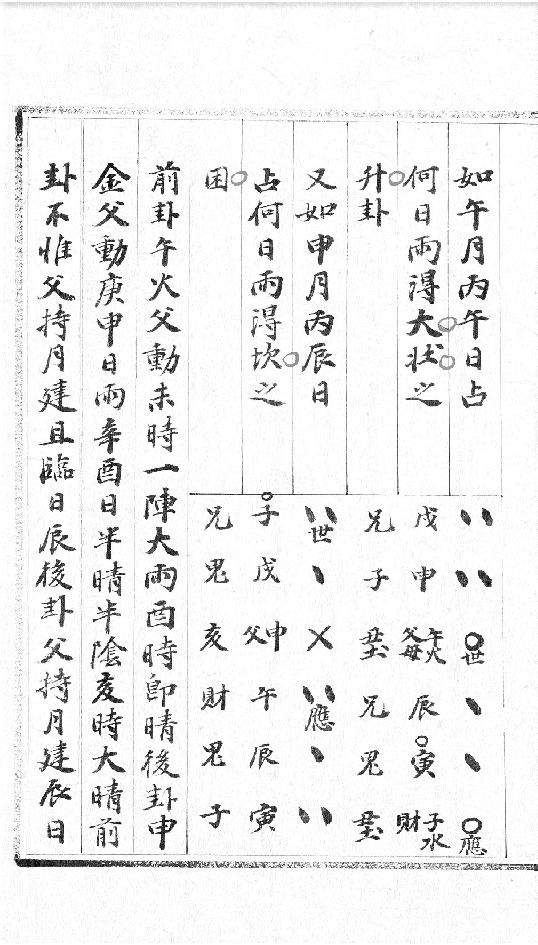 如午月丙午日占
何日雨得大壯之
升卦
又如申月丙辰日
占何日雨得坎之
困
世 應
戌 申 午火父母 辰 寅 子水財
兄 子 丑土 兄 鬼 丑土
世 應
子 戌 申父 午 辰 寅
兄 鬼 亥 財 鬼 子
前卦午火父動未時一陣大雨酉時即晴後卦申
金父動庚申日雨辛酉日半晴半陰亥時大晴前
卦不惟父持月建且臨日辰後卦父持月建辰日